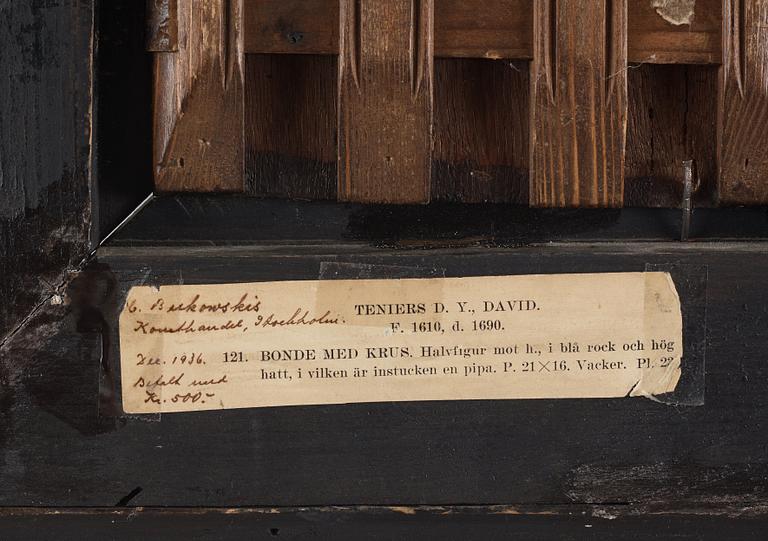 C. Bukowskis
Konsthandel, Stockholm.
Dec. 1936.
Betalt med
Kr. 500:-
TENIERS D. Y., DAVID.
F. 1610, d. 1690.
121. BONDE MED KRUS. Halvfigur mot h., i blå rock och hög
hatt, i vilken är instucken en pipa. P. 21×16. Vacker. Pl. 22